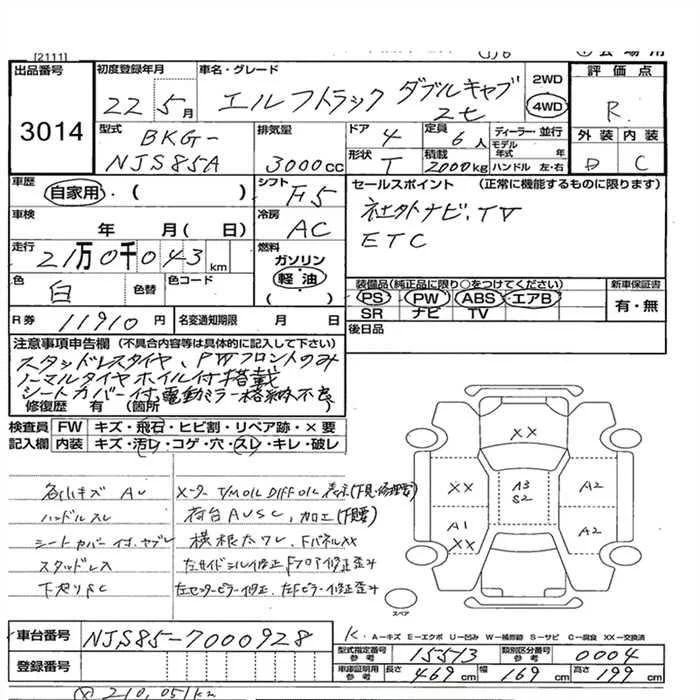 [2111]
出品番号
3014
初度登録年月
22 5月
車名・グレード
エルフトラック ダブルキャブ
2t
2WD
4WD
評価点
R
外装 内装
D C
型式
BKG-
NJS85A
排気量
3000cc
ドア 4
定員 6人
形状 T
積載 2000kg
ディーラー・並行
モデル年式 年
ハンドル 左・右
車歴
自家用・( )
シフト F5
車検
年 月( 日)
冷房 AC
走行
21万0千043km
燃料
ガソリン
軽油
( )
色 白
色替
色コード
R券 11910円
名変通知期限 月 日
セールスポイント (正常に機能するものに限ります)
社外ナビ、TV
ETC
装備品(純正品に限り○をつけてください)
PS PW ABS エアB
SR ナビ TV
新車保証書
有・無
後日品
注意事項申告欄 (不具合内容等は具体的に記入して下さい)
スタッドレスタイヤ、PWフロントのみ
ノーマルタイヤホイル付搭載
シートカバー付、電動ミラー格納不良
修復歴 有 (箇所
検査員記入欄
FW キズ・飛石・ヒビ割・リペア跡・×要
内装 キズ・汚レ・コゲ・穴・スレ・キレ・破レ
各小キズ AU
ハンドルスレ
シートカバー付、ヤブレ
スタッドレス
下廻りSC
メーター T/M OIL DIFF OIL
荷台AUSC、加工
Fパネルxx
XX
XX
A1
XX
A3
S2
A2
A2
スペア
車台番号 NJS85-7000928
登録番号
A-キズ E-エクボ U-凹み W-補修跡 S-サビ C-腐食 XX-交換済
型式指定番号 参考 15513
類別区分番号 参考 0004
車庫証明用 参考
長さ 469cm 幅 169cm 高さ 199cm
210,051km